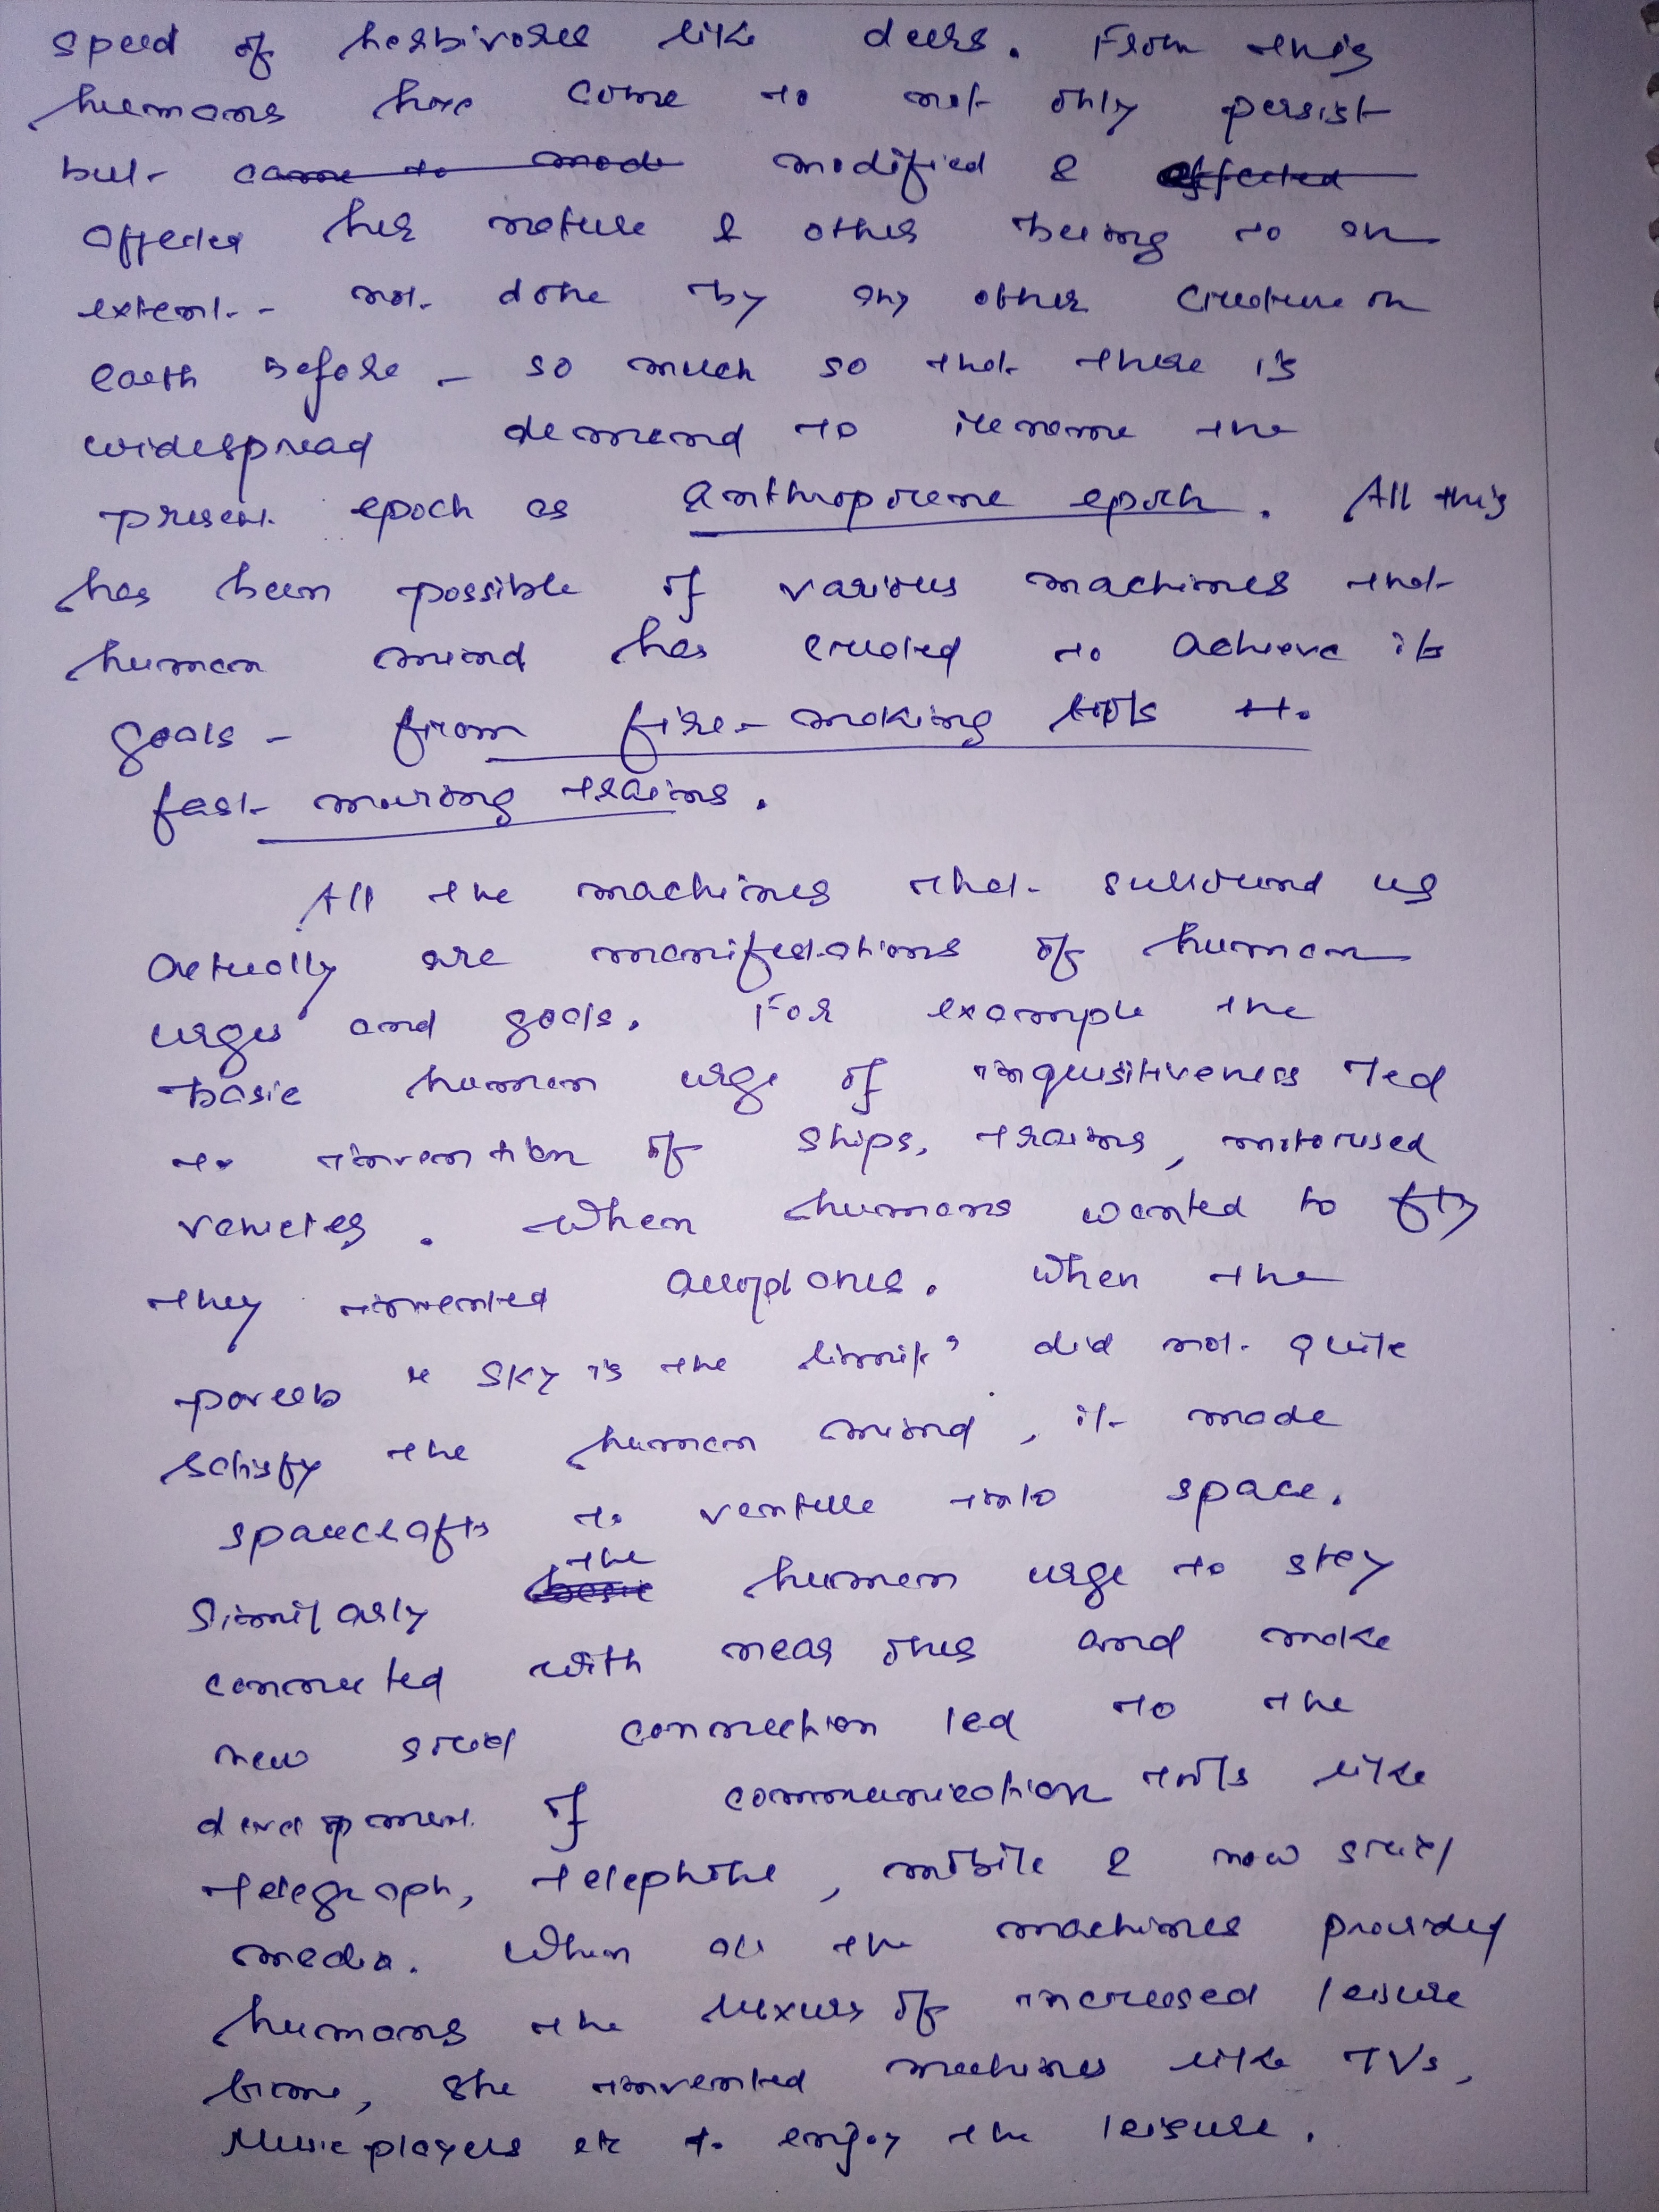 speed of herbivores like deers. From this
humans have come to not only persist
but came to mode modified & effected
affected her nature & other being to an
extent - not done by any other creature on
earth before - so much so that there is
widespread demand to rename the
present epoch as anthropocene epoch. All this
has been possible of various machines that
human mind has created to achieve its
goals - from fire-making tools to
fast moving trains.
All the machines that surround us
actually are manifestations of human
urges and goals. For example the
basic human urge of inquisitiveness led
to invention of ships, trains, motorised
vehicles. When humans wanted to fly
they invented aeroplanes. When the
"sky is the limit" did not quite
satisfy the human mind, it made
spacecrafts to venture into space.
Similarly basic the human urge to stay
connected with near ones and make
new social connection led to the
development of communication tools like
telegraph, telephone, mobile & now social
media. When all the machines provided
humans the luxury of increased leisure
time, she invented machines like TVs,
Music players etc to enjoy the leisure.